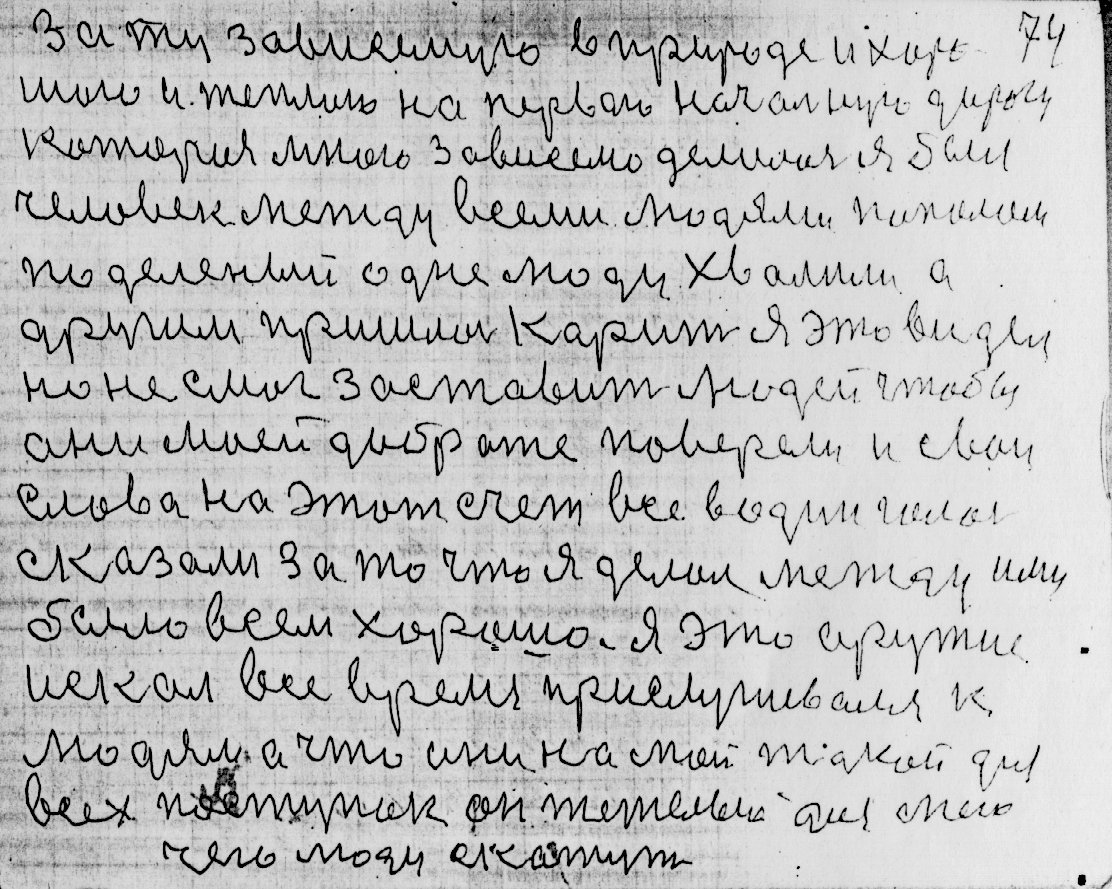 За ту зависемую в природе и харо 74
шою и теплою на первою началную дорогу
которая мною зависемо делилася я был
человек между всеми людями пополам
поделеный одне люди хвалили а
другим пришлос карит я это видел
но не смог заставит людей чтобы
ани моей доброте поверели и свои
слова на этот счет все в один голос
сказали за то что я делал между ими
было всем хорошо. я это оружие
искал все время прислушивался к
людям а что они на мой такой для
всех поступок он тежелый для мено
чего люди скажут